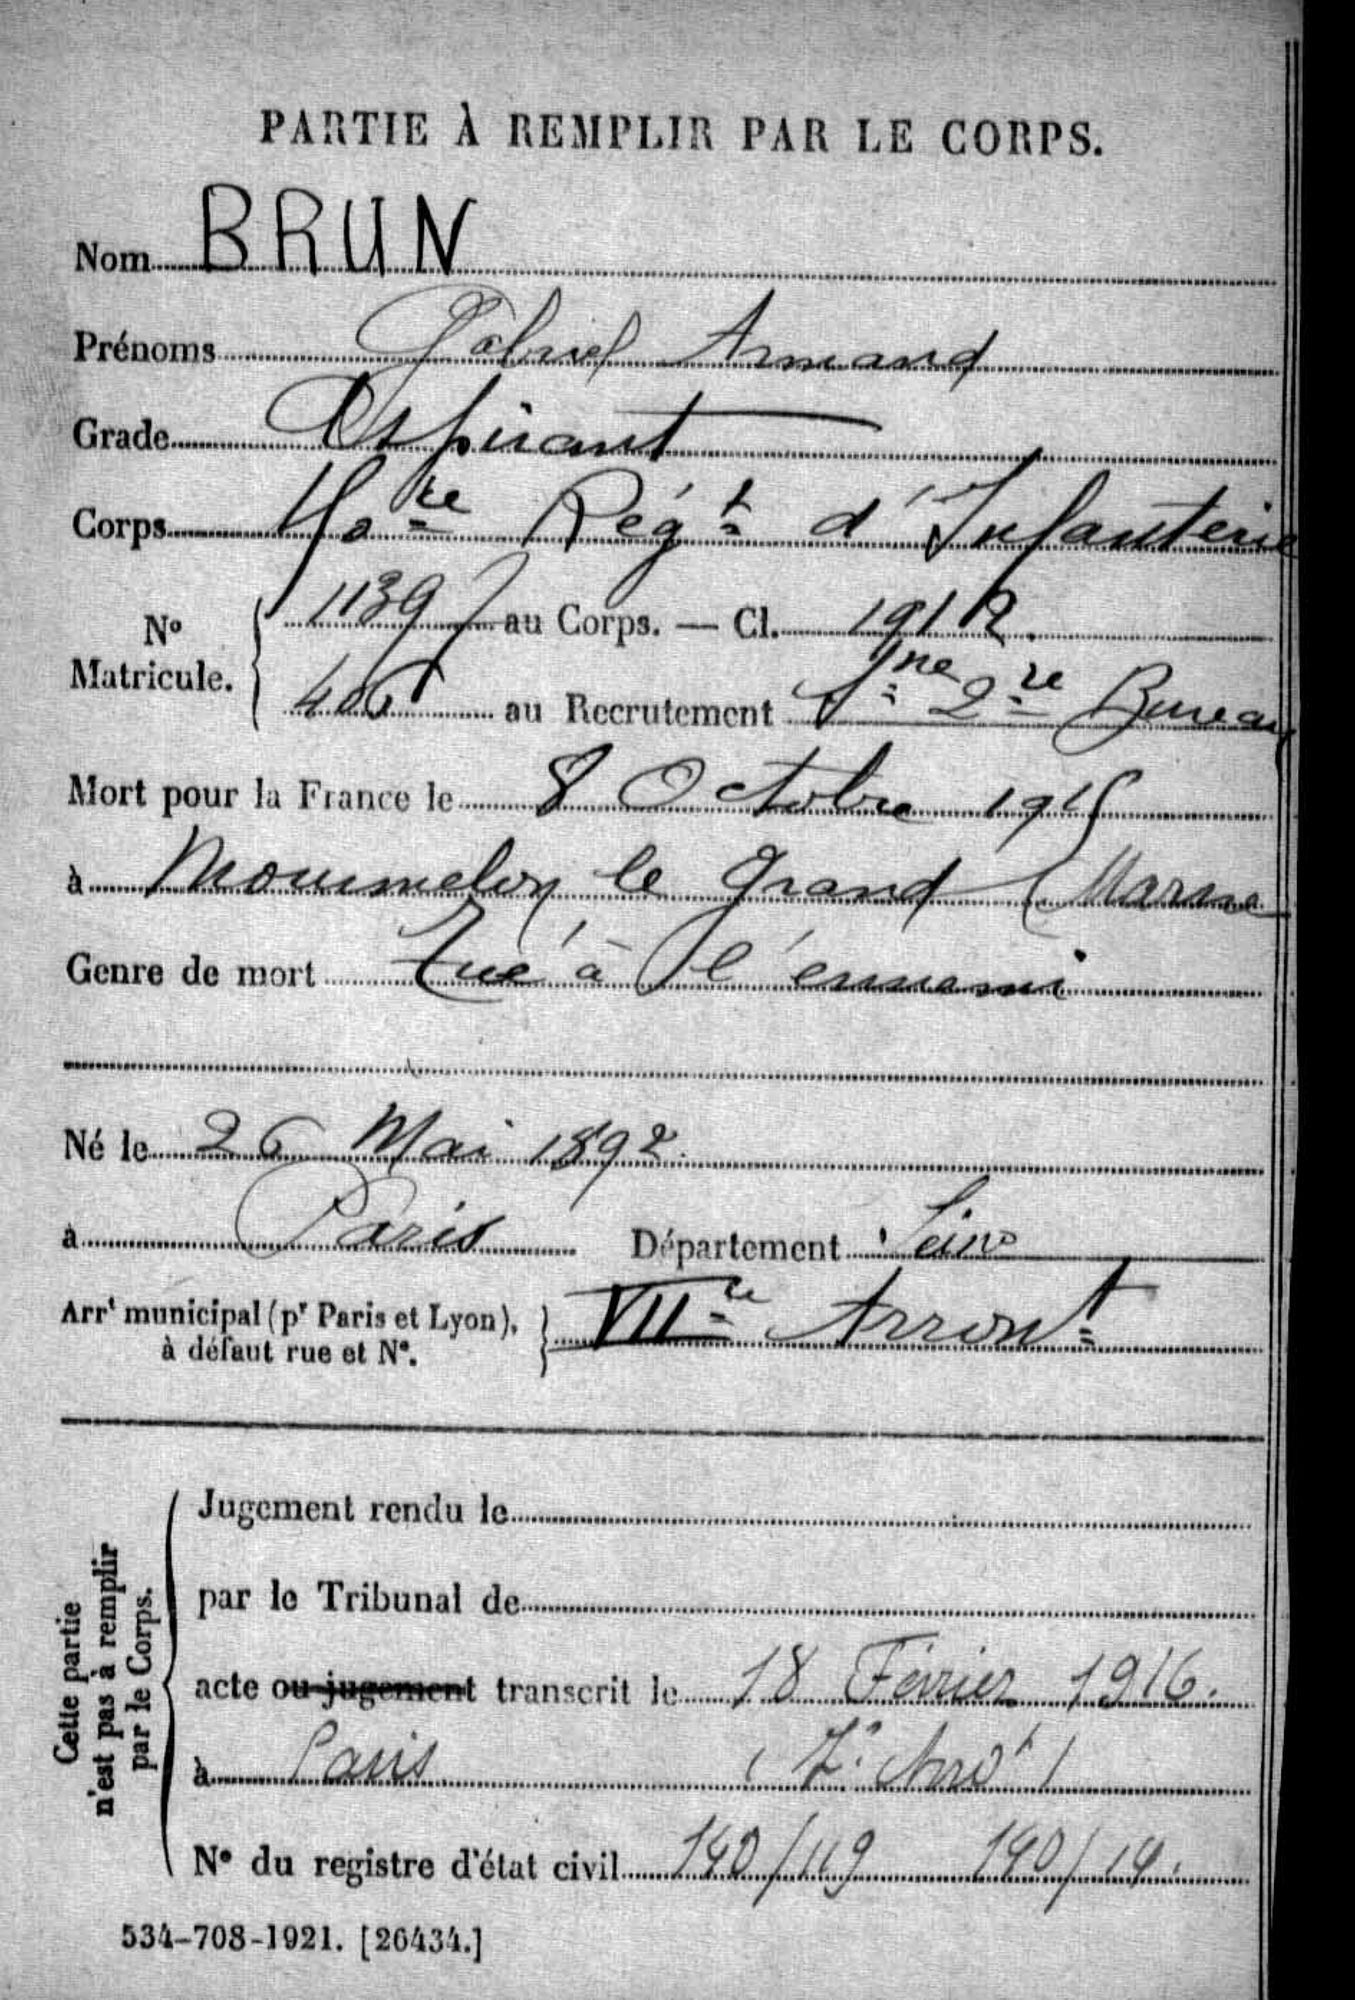 PARTIE À REMPLIR PAR LE CORPS.
Nom BRUN
Prénoms Gabriel Armand
Grade Aspirant
Corps 40re Régt d'Infanterie
No Matricule. 1139 au Corps. — Cl. 1912.
406 au Recrutement Sne 2re Bureau
Mort pour la France le 8 Octobre 1915
à Mourmelon le Grand (Marne
Genre de mort Tué à l'ennemi
Né le 26 Mai 1892.
à Paris Département Seine
Arrt municipal (pr Paris et Lyon), à défaut rue et No. VIIre Arront
Cette partie n'est pas à remplir par le Corps.
Jugement rendu le
par le Tribunal de
acte ou jugement transcrit le 18 Février 1916.
à Paris (7e Arrt)
No du registre d'état civil 190/119 190/19.
534-708-1921. [26434.]